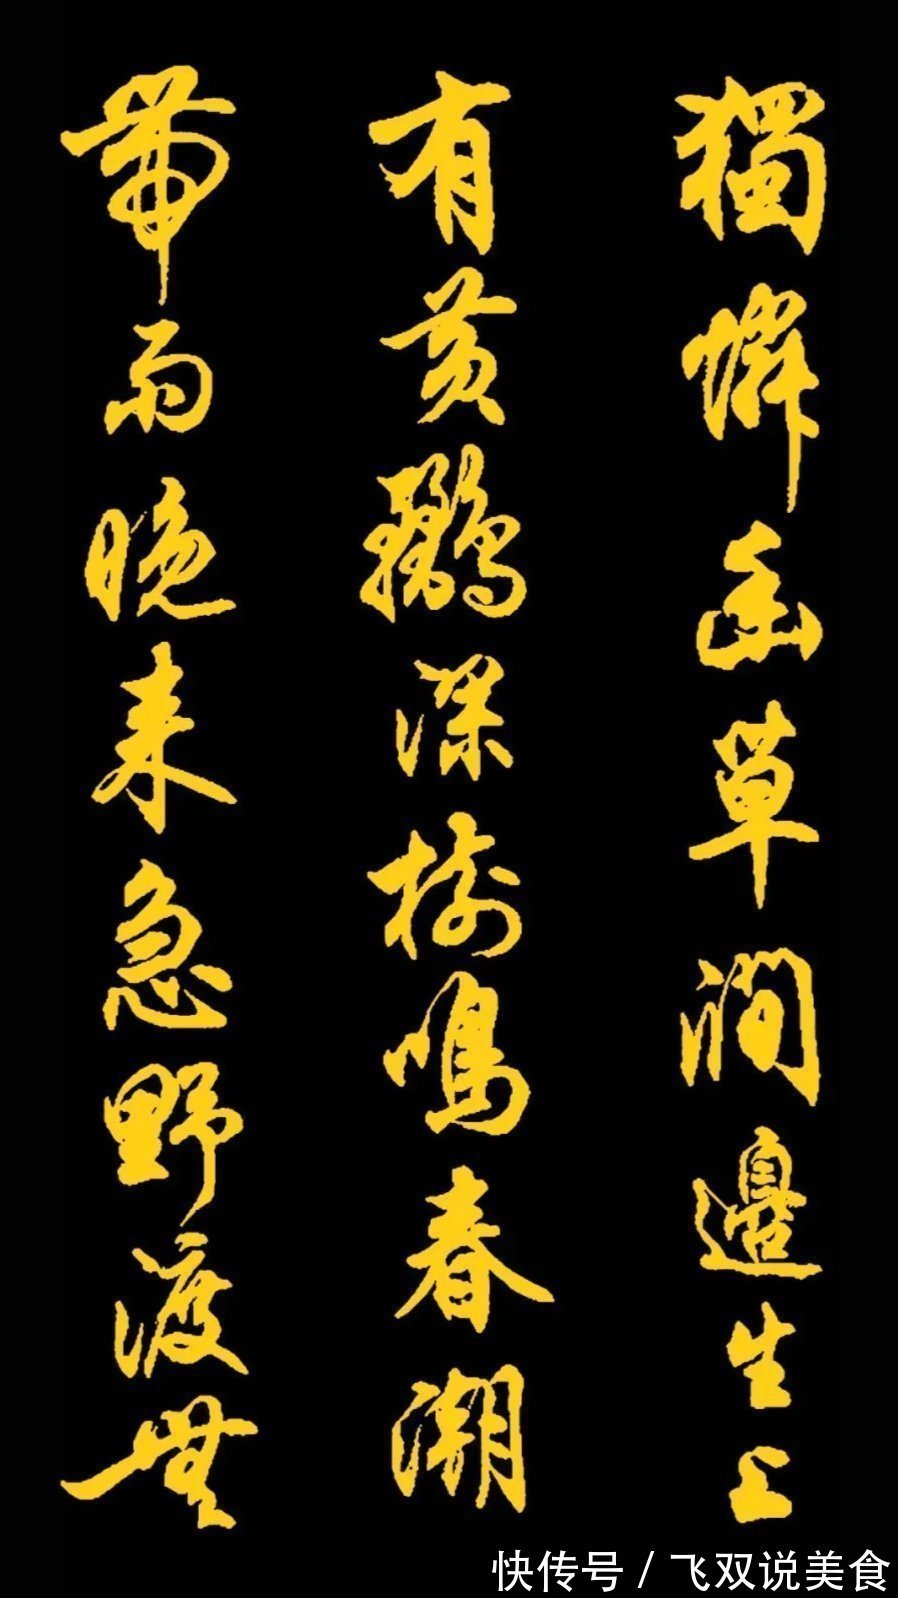 獨憐幽草澗邊生上
有黄鸝深樹鳴春潮
帶雨晚来急野渡無
快传号 / 飞双说美食